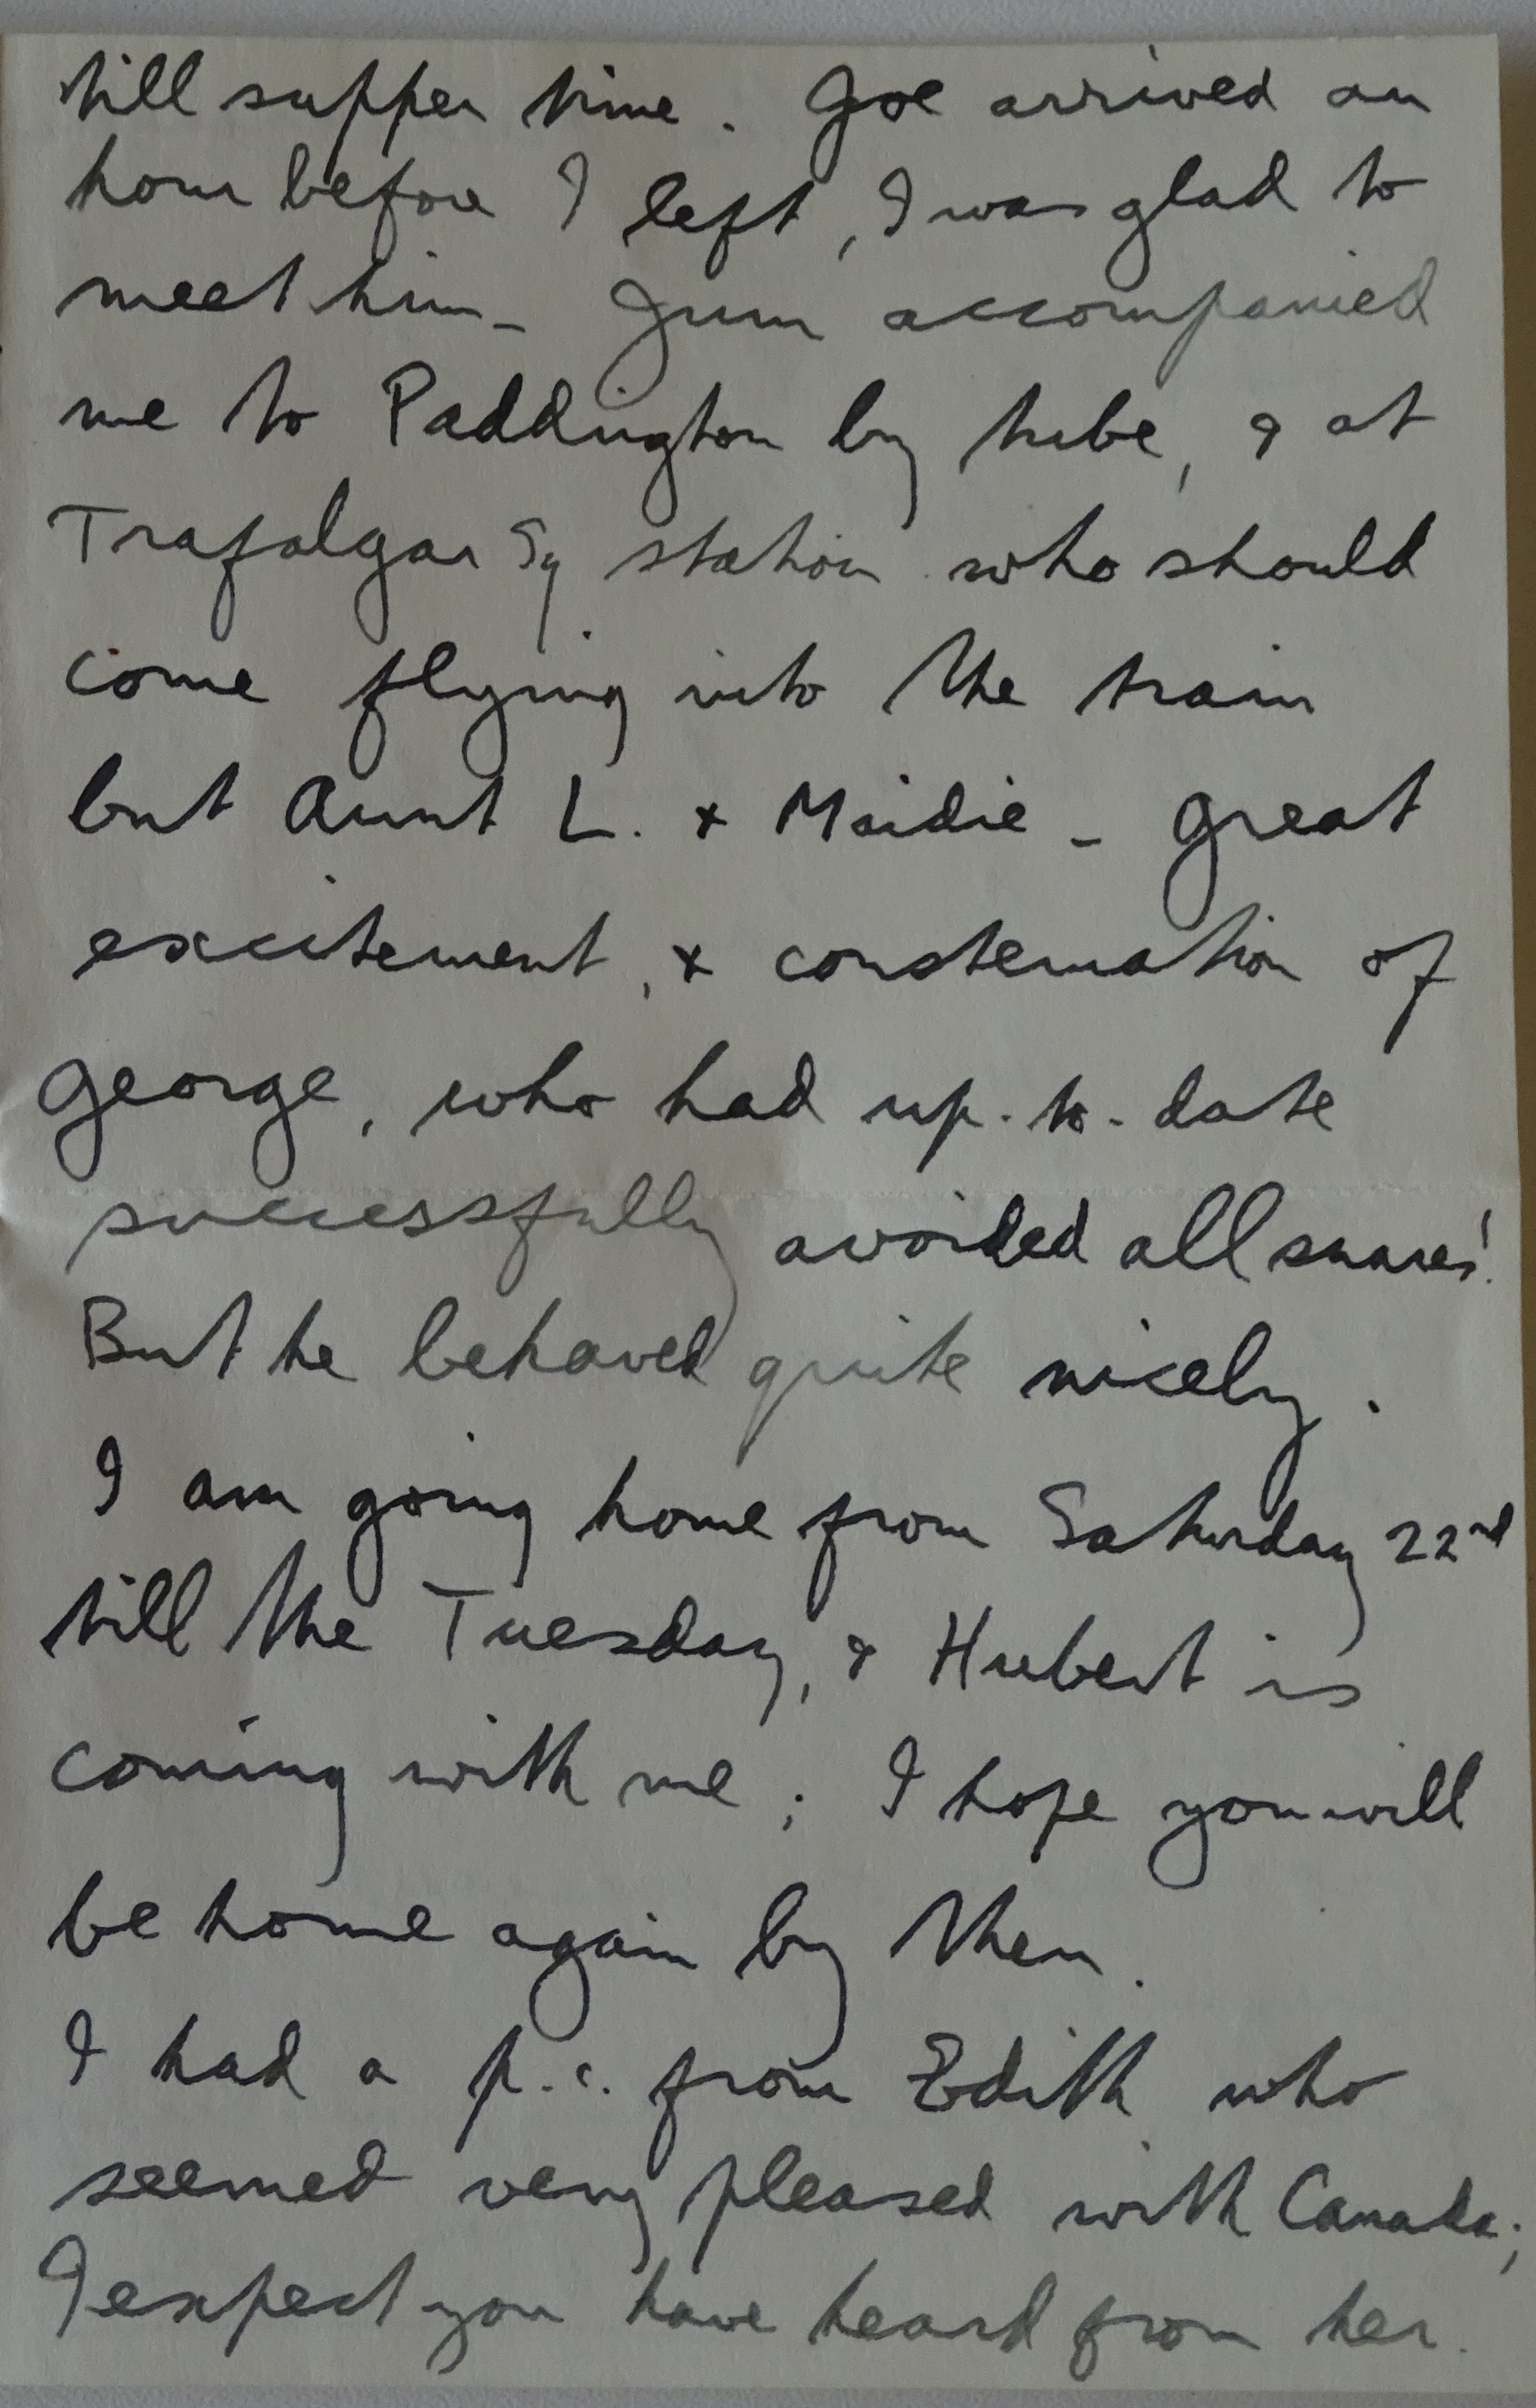 till supper time. Joe arrived an
hour before I left, I was glad to
meet him – Jum accompanied
me to Paddington by tube, & at
Trafalgar Sq station who should
come flying into the train
but Aunt L. & Maidie – great
excitement, & consternation of
George, who had up-to-date
successfully avoided all snares!
But he behaved quite nicely.
I am going home from Saturday 22nd
till the Tuesday, & Hubert is
coming with me; I hope you will
be home again by then.
I had a p.c. from Edith who
seemed very pleased with Canada;
I expect you have heard from her.